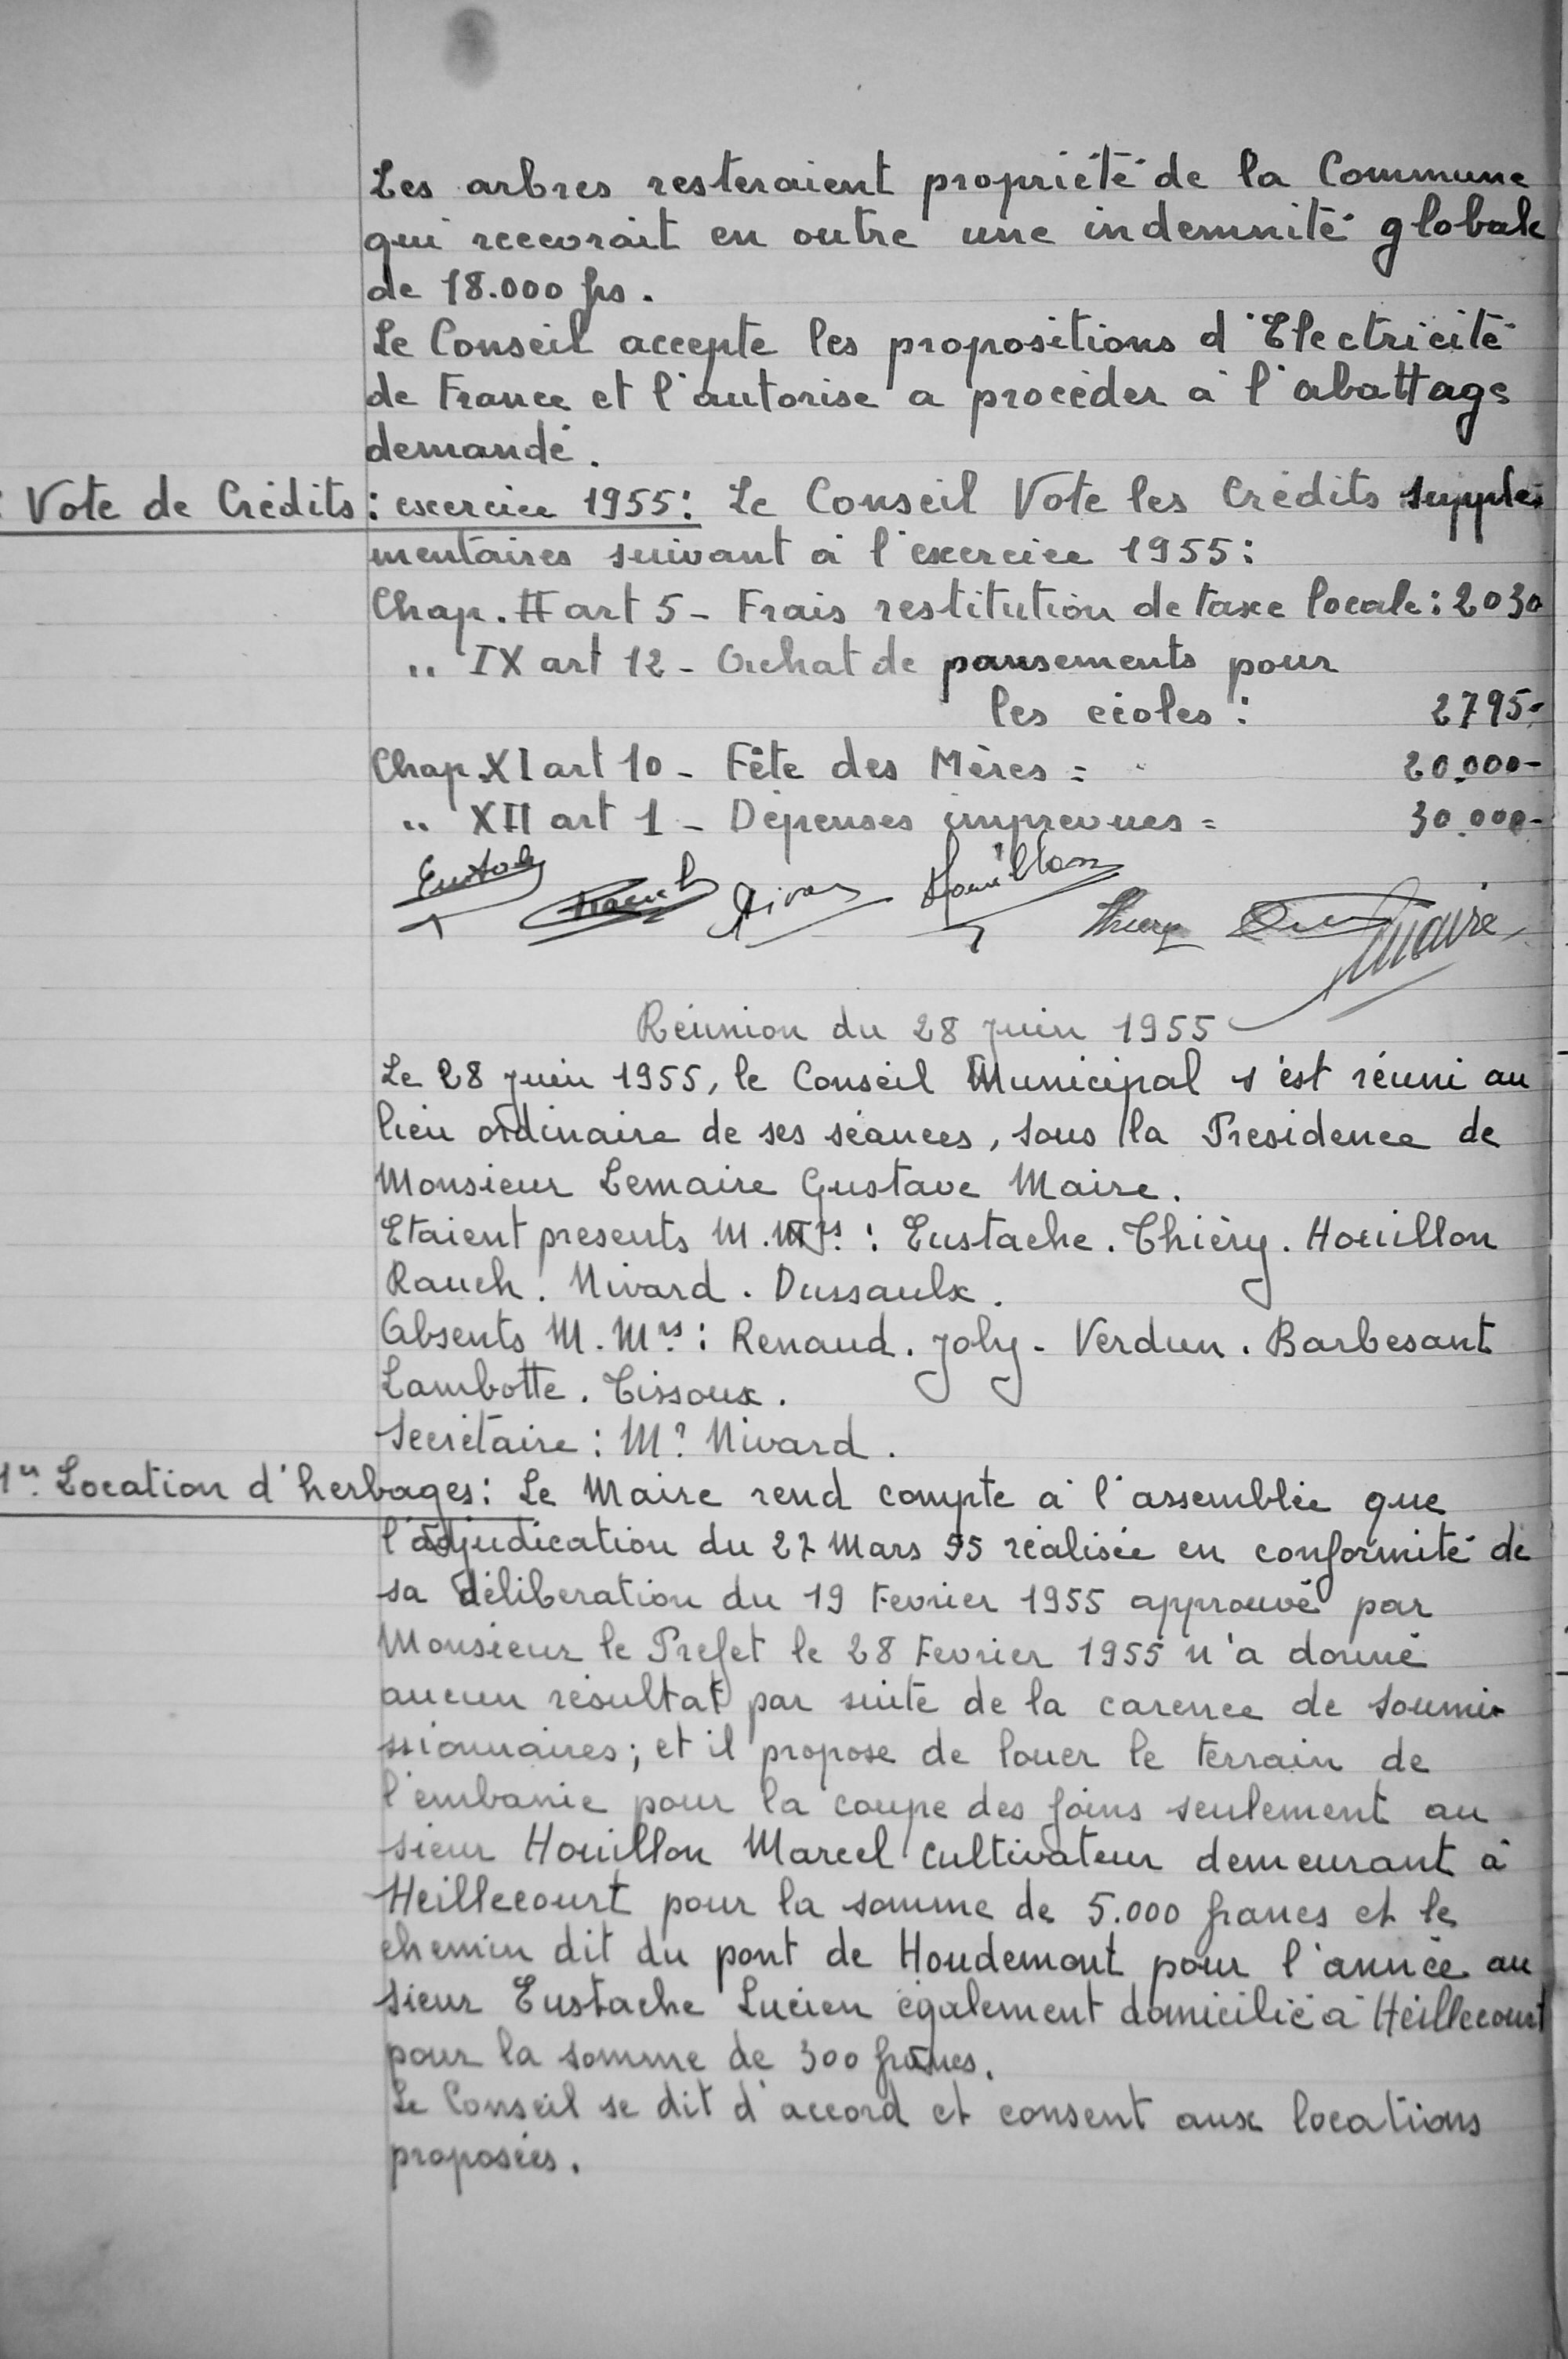 Les arbres resteraient propriété de la Commune
qui recevrait en outre une indemnité globale
de 18.000 frs.
Le Conseil accepte les propositions d'Electricité
de France et l'autorise a procéder à l'abattage
demandé.
Vote de Crédits : exercice 1955 : Le Conseil Vote les Crédits supplé-
mentaires suivant à l'exercice 1955 :
Chap. II art 5 - Frais restitution de taxe locale : 2030
" IX art 12 - Achat de pansements pour
les écoles : 2795-
Chap. XI art 10 - Fête des Mères = 20.000-
" XII art 1 - Dépenses imprevues = 30.000-
Houillon
Thiery
Réunion du 28 juin 1955
Le 28 juin 1955, le Conseil Municipal s'est réuni au
lieu ordinaire de ses séances, sous la Presidence de
Monsieur Lemaire Gustave Maire.
Etaient presents M.Mrs : Eustache. Thiéry. Houillon
Rauch. Nivard. Dussaulx.
Absents M.Mrs : Renaud. Joly. Verdun. Barbesant
Lambotte. Tissoux.
Secrétaire : Mr Nivard.
1er Location d'herbages : Le Maire rend compte à l'assemblée que
l'adjudication du 27 Mars 55 réalisée en conformité de
sa déliberation du 19 Fevrier 1955 approuvé par
Monsieur le Prefet le 28 Fevrier 1955 n'a donné
aucun résultat par suite de la carence de soumi-
ssionnaires; et il propose de louer le terrain de
l'embanie pour la coupe des foins seulement au
sieur Houillon Marcel cultivateur demeurant à
Heillecourt pour la somme de 5.000 francs et le
chemin dit du pont de Houdemont pour l'année au
sieur Eustache Lucien également domicilié à Heillecourt
pour la somme de 300 francs.
Le Conseil se dit d'accord et consent aux locations
proposées.